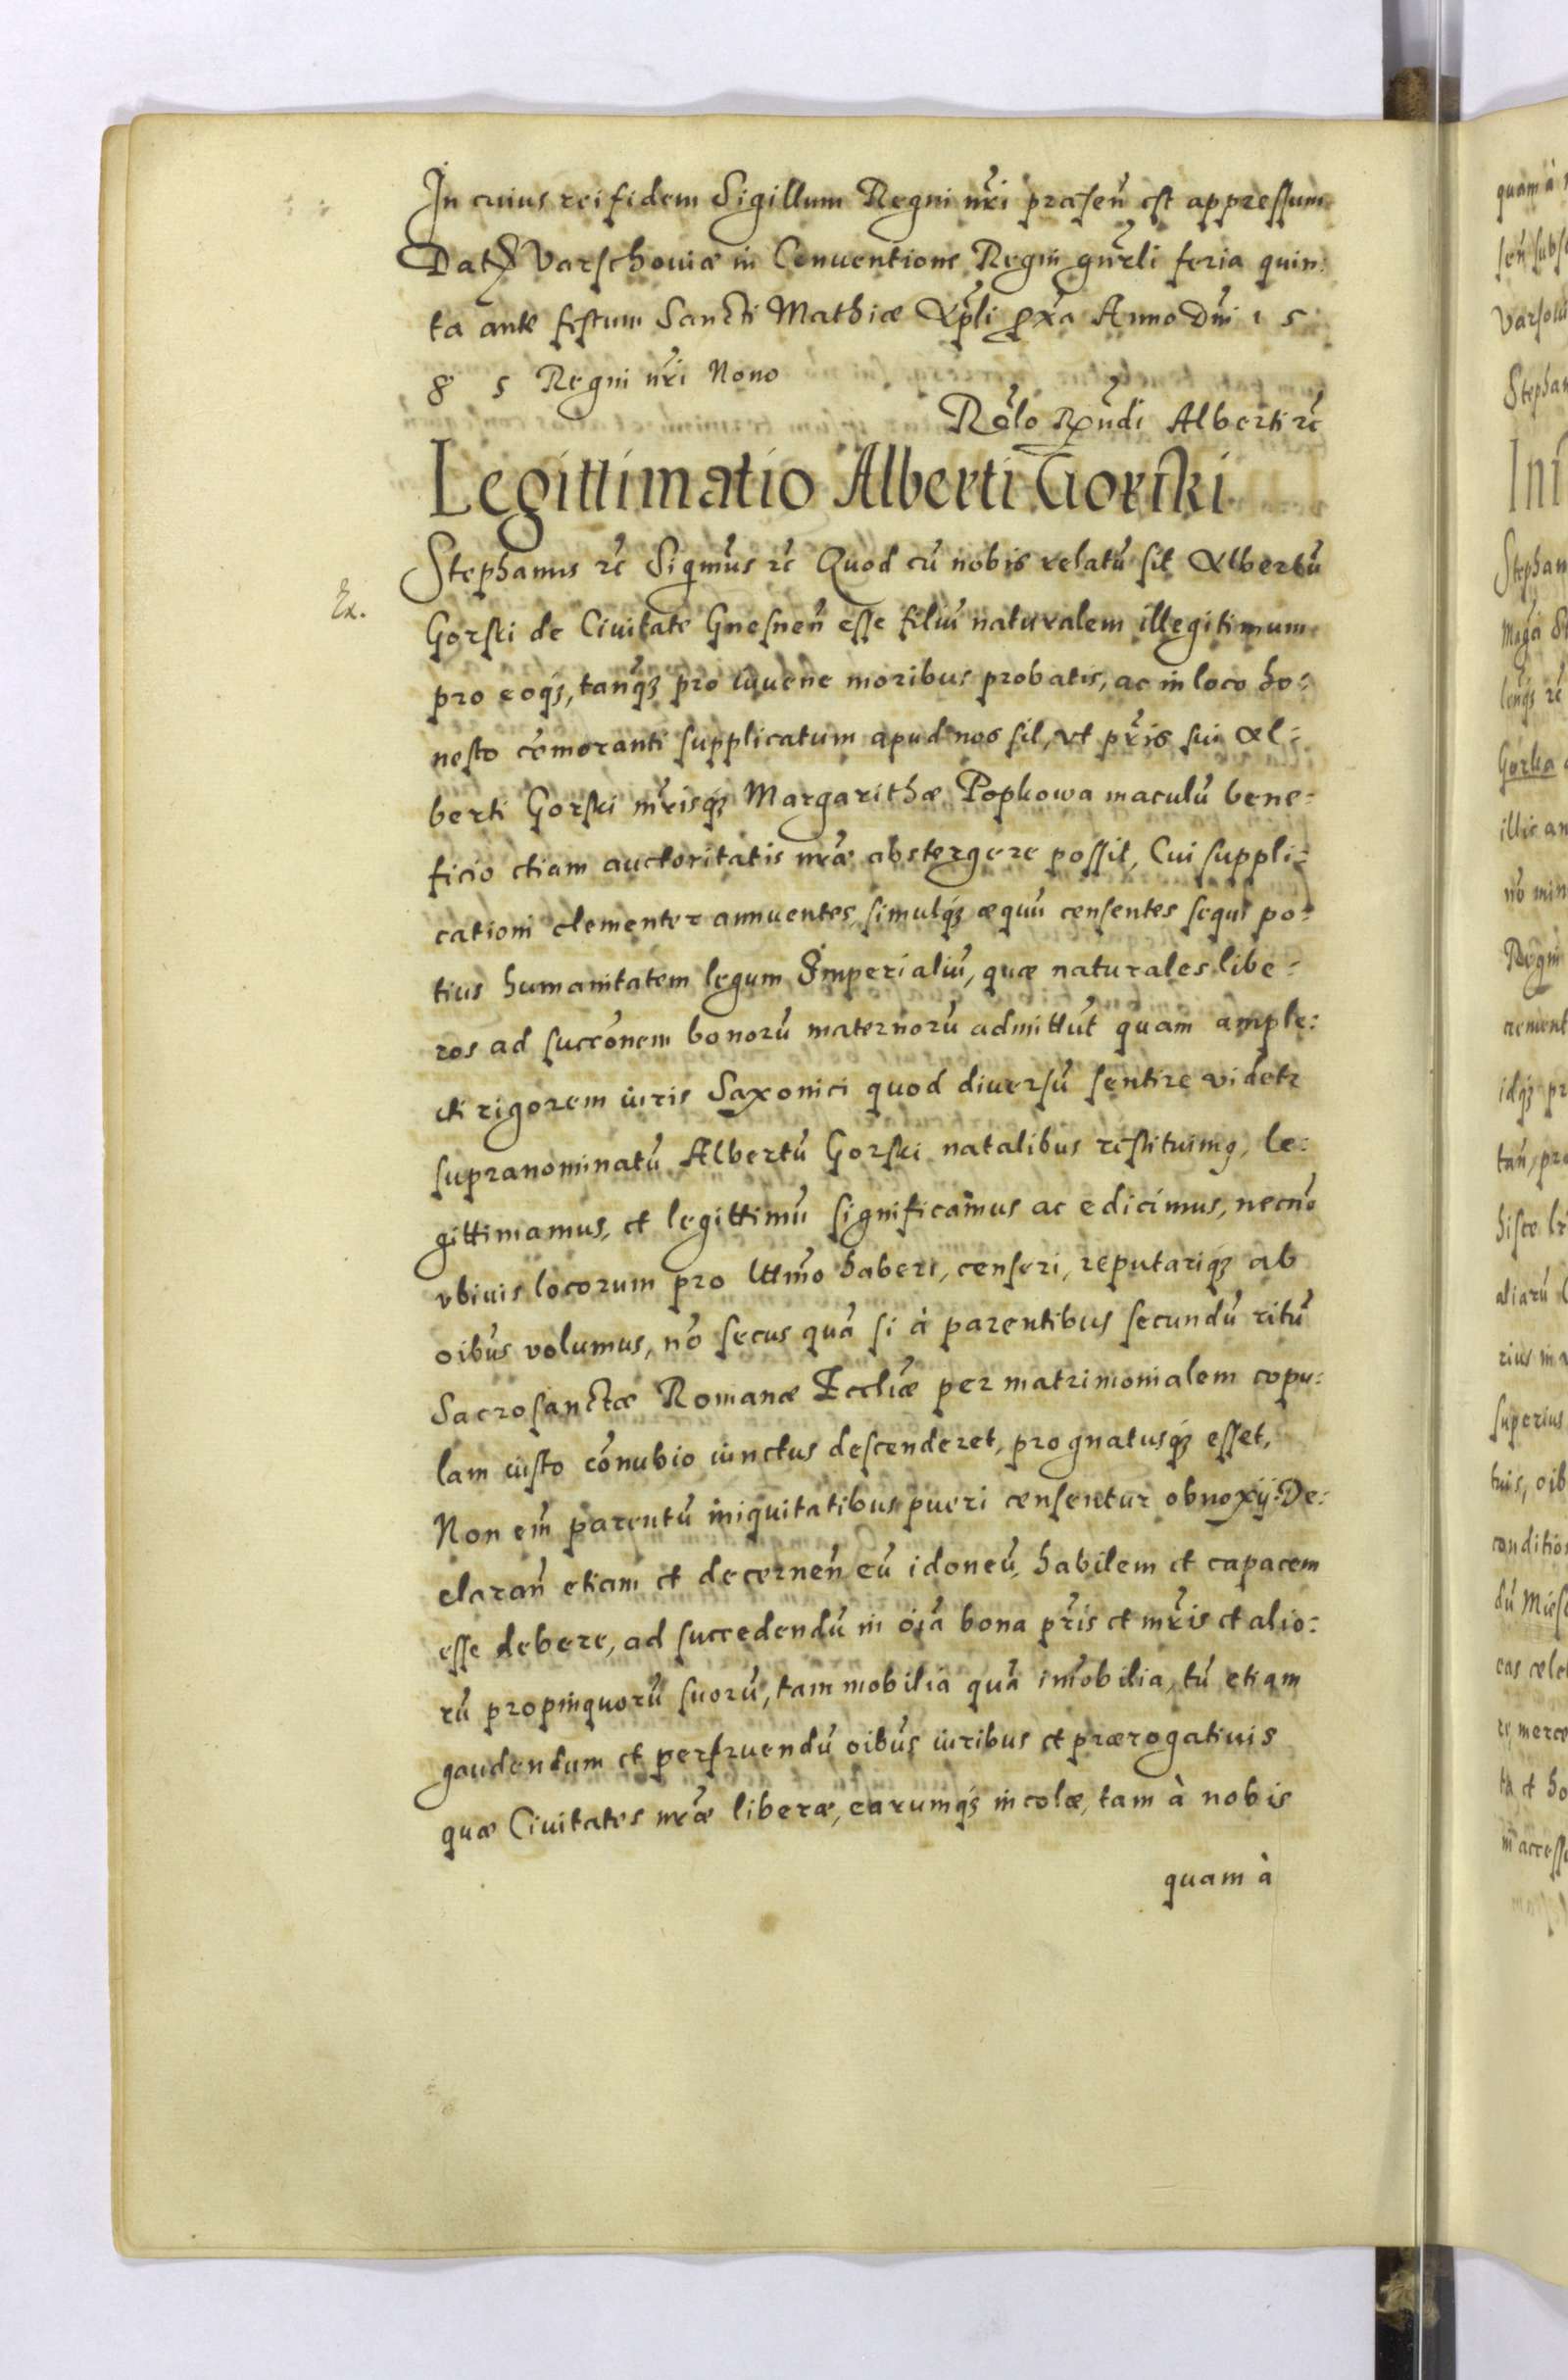 In cuius rei fidem Sigillum Regni nr̃i præsen̄ est appressum
Dat Varschoviæ in Conuentione Regni gnr̃li feria quin:
ta ante festum Sancti Mathiæ Apl̃i px̃a Anno Dn̄i 1 5
8 5 Regni nr̃i Nono
Rel̃o Rn̄di Alberti ꝛc̃
Legittimatio Alberti Gorski
Ex.
Stephanus ꝛc̃ Sigm̃us ꝛc̃ Quod cū nobis relatū sit Albertū
Gorski de Ciuitate Gnesnen̄ esse filiū naturalem illegitimum
pro eoqȝ, tanqȝ pro iuuene moribus probatis, ac in loco ho:
nesto cōmoranti supplicatum apud nos sit, vt pr̃is sui Al:
berti Gorski mr̃isqȝ Margarithæ Popkowa maculū bene:
ficio etiam auctoritatis nr̃æ abstergere possit, Cui suppli:
cationi clementer annuentes, simulqȝ æquū censentes sequi po:
tius humanitatem legum Imperialiū, quæ naturales libe:
ros ad succōnem bonorū maternorū admittūt quam ample:
cti rigorem iuris Saxonici quod diuersū sentire videtr
supranominatū Albertū Gorski natalibus restituimq, le:
gittimamus, et legittimū significamus ac edicimus, necnō
vbiuis locorum pro lttm̃o haberi, censeri, reputariqȝ ab
oibūs volumus, nō secus quā si à parentibus secundū ritū
Sacrosanctæ Romanæ Eccliæ̃ per matrimonialem copu:
lam iusto cōnubio iunctus descenderet, prognatusqȝ esset,
Non em̄ parentū iniquitatibus pueri censentur obnoxij. De:
claran̄ etiam et decernen̄ eū idoneū, habilem et capacem
esse debere, ad succedendū in oīa bona pr̃is et mr̃is et alio:
rū propinquorū suorū, tam mobilia quā im̄obilia, tū etiam
gaudendum et perfruendū oibūs iuribus et prærogatiuis
quæ Ciuitates nr̃æ liberæ, earumqȝ incolæ, tam à nobis
quam à